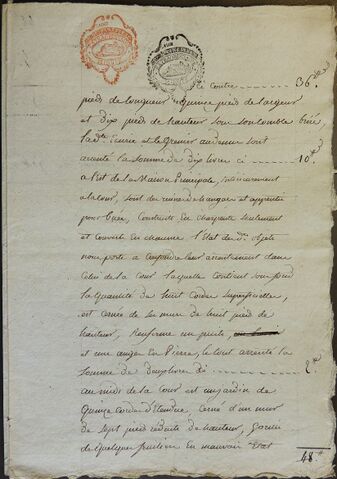 Ci Contre 36.
pieds de longueur quinze pieds de largeur
et dix pieds de hauteur sous son comble brisé,
lad.te Ecurie et le Grenier au dessus sont
arenté la somme de dix livres ci 10.
a l'Est de la Maison Principale, intérieurement
à la Cour, sont des remises hangars et appentis
pour Construits en charpente seulement
et couverts en chaume. l'Etat de d. objets
nous porte a confondre leur arentement dans
Celui de la Cour laquelle contient son fond
la quantité de huit Cordes superficielles,
est cernée de ses murs de huit pieds de
hauteur, Renferme un puits,
et une auge en Pierre, le tout arenté la
somme de deux livres ci 2.
au midi de la Cour est un jardin de
Quinze Cordes d'Etendue, Cerné d'un mur
de sept pieds reduits de hauteur, garni
de quelques fruitiers en mauvais Etat
48.